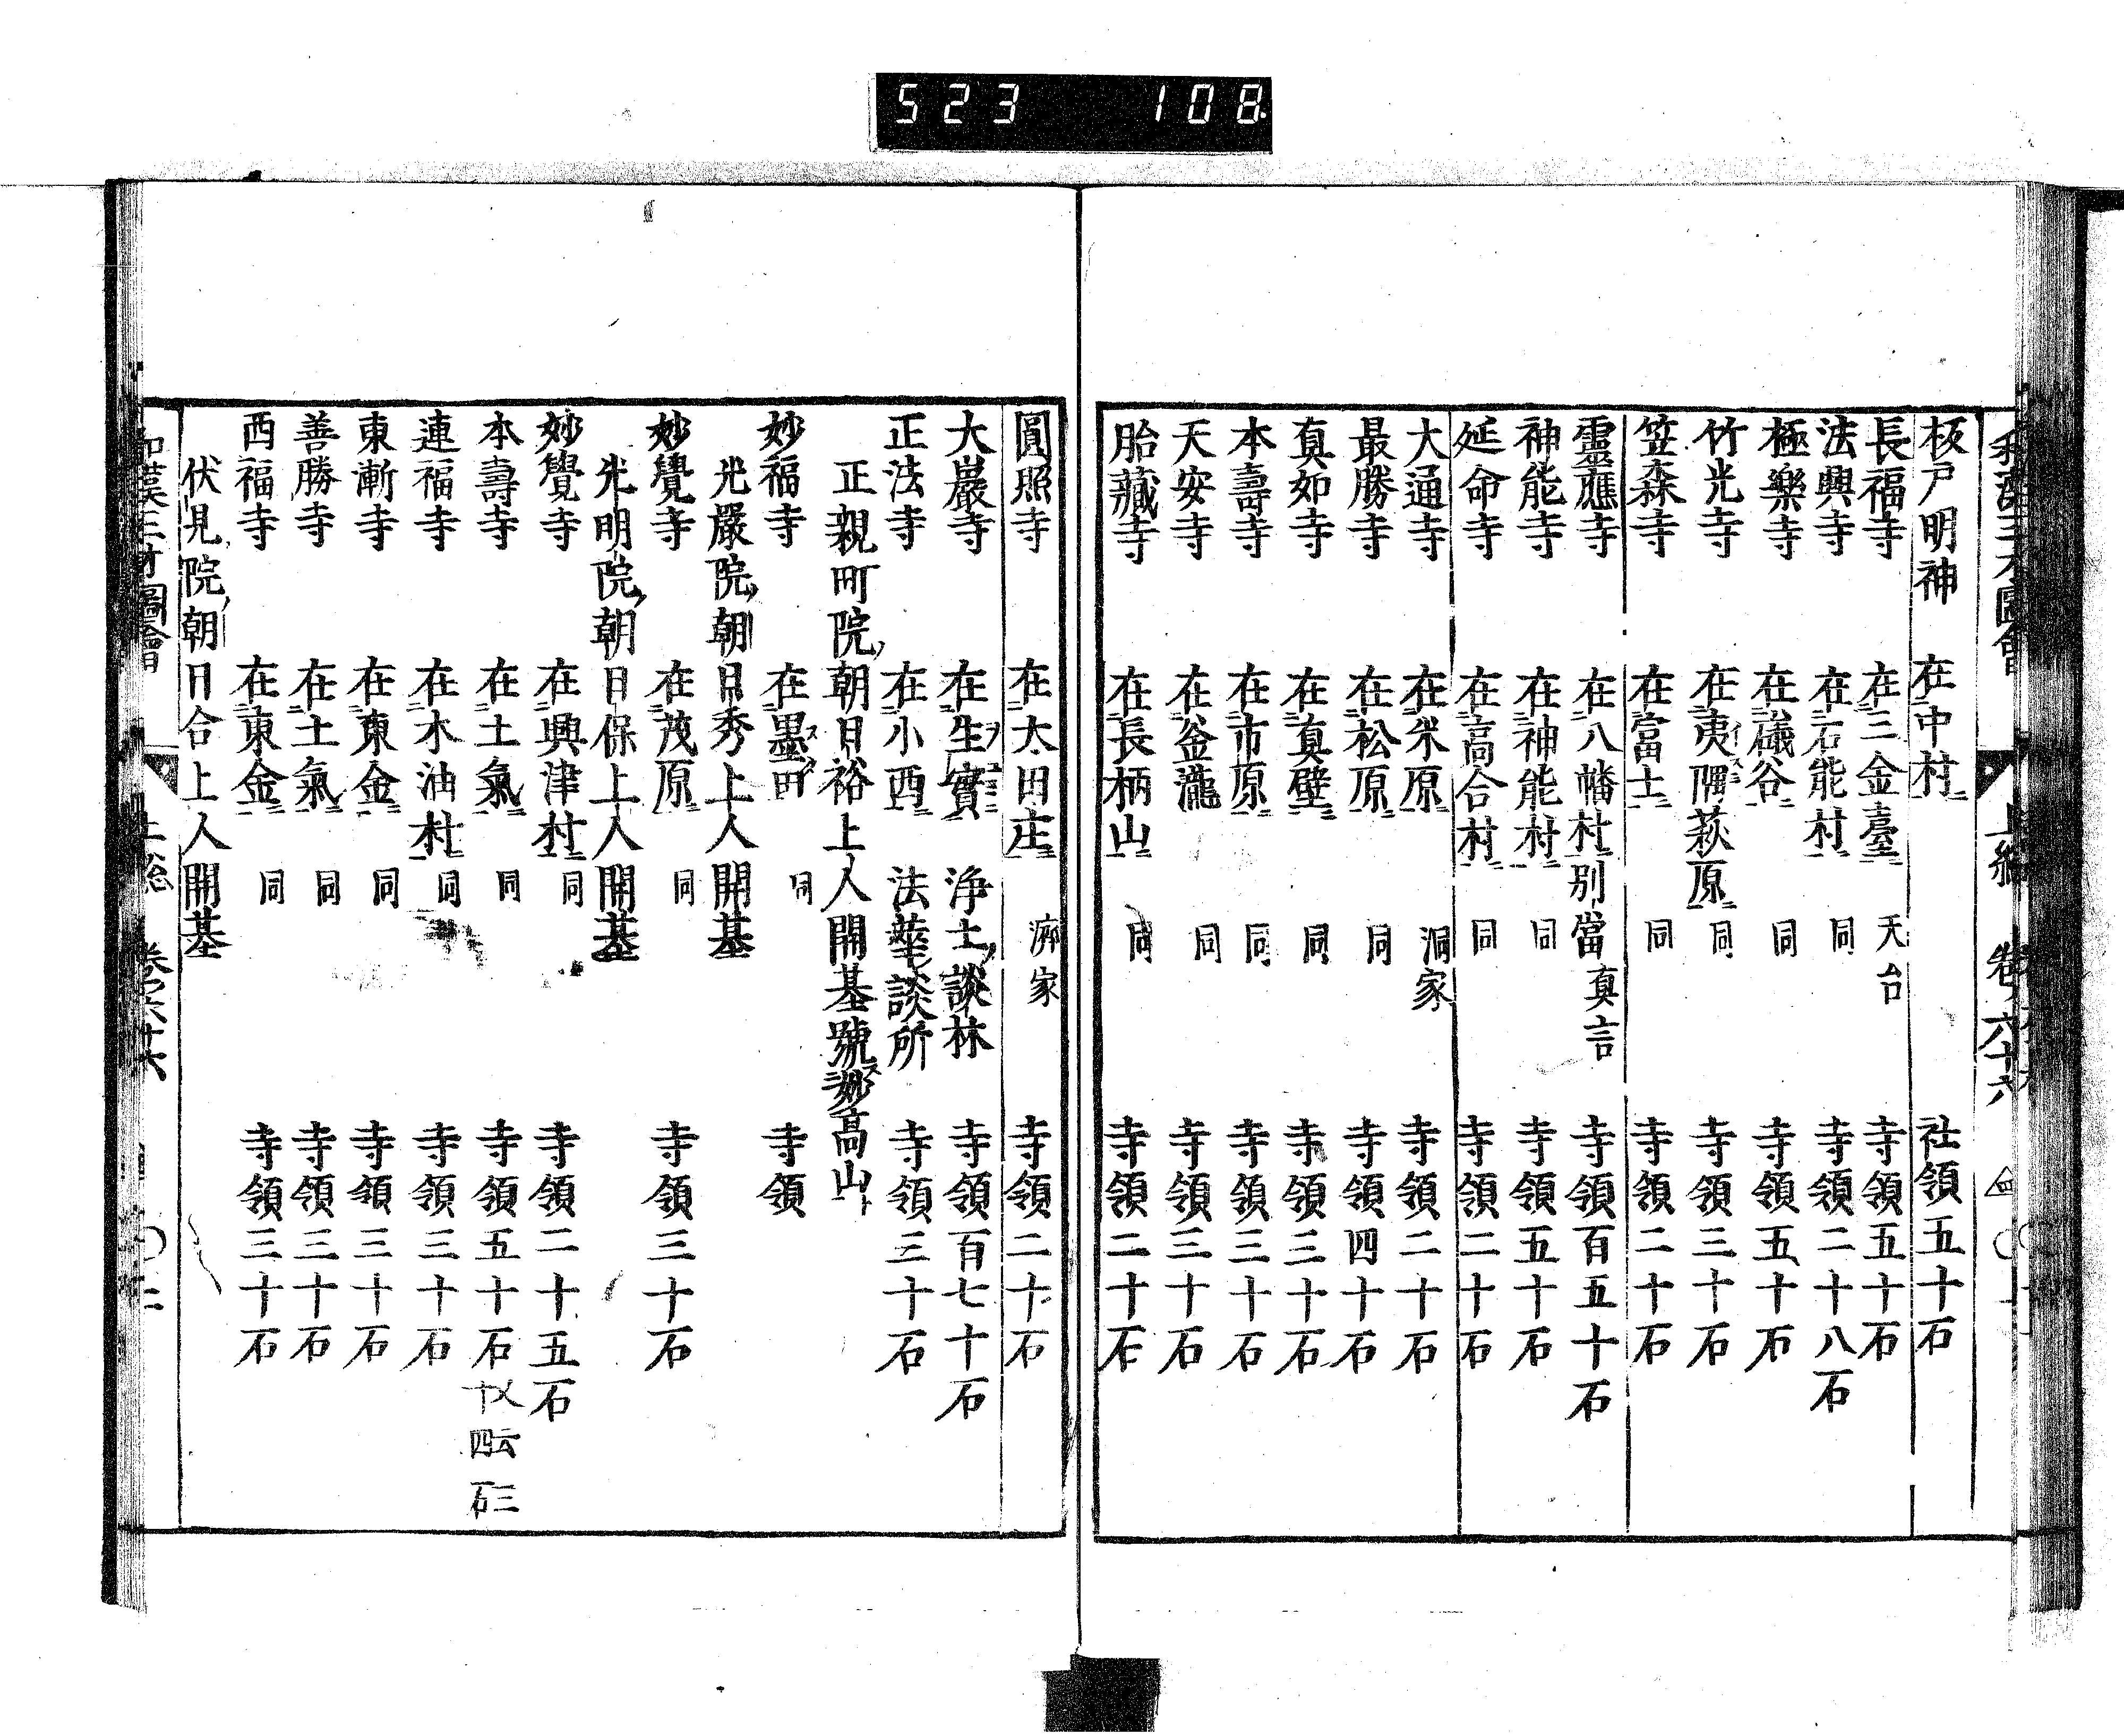 523 108
和漢三才圖會 上總 卷ノ六十六
板戸明神 在中村 社領五十石
長福寺 在三金臺 天台 寺領五十石
法興寺 在石能村 同 寺領二十八石
極樂寺 在礒谷 同 寺領五十石
竹光寺 在夷隅萩原 同 寺領三十石
笠森寺 在富士 同 寺領二十石
靈應寺 在八幡村別當 真言 寺領百五十石
神能寺 在神能村 同 寺領五十石
延命寺 在高合村 同 寺領二十石
大通寺 在米原 洞家 寺領二十石
最勝寺 在松原 同 寺領四十石
真如寺 在真壁 同 寺領三十石
本壽寺 在市原 同 寺領三十石
天安寺 在釜瀧 同 寺領三十石
胎藏寺 在長柄山 同 寺領二十石
圓照寺 在大田庄 濟家 寺領二十石
大巖寺 在生實 浄土談林 寺領百七十石
正法寺 在小西 法華談所 寺領三十石
正親町院朝日裕上人開基號妙高山
妙福寺 在墨田 同 寺領
光嚴院朝日秀上人開基
妙覺寺 在茂原 同 寺領三十石
光明院朝日保上人開基
妙覺寺 在興津村 同 寺領二十五石
本壽寺 在土氣 同 寺領五十石 又云三十四石
連福寺 在木油村 同 寺領三十石
東漸寺 在東金 同 寺領三十石
善勝寺 在土氣 同 寺領三十石
西福寺 在東金 同 寺領三十石
伏見院朝日合上人開基
和漢三才圖會 上総 卷之六十六